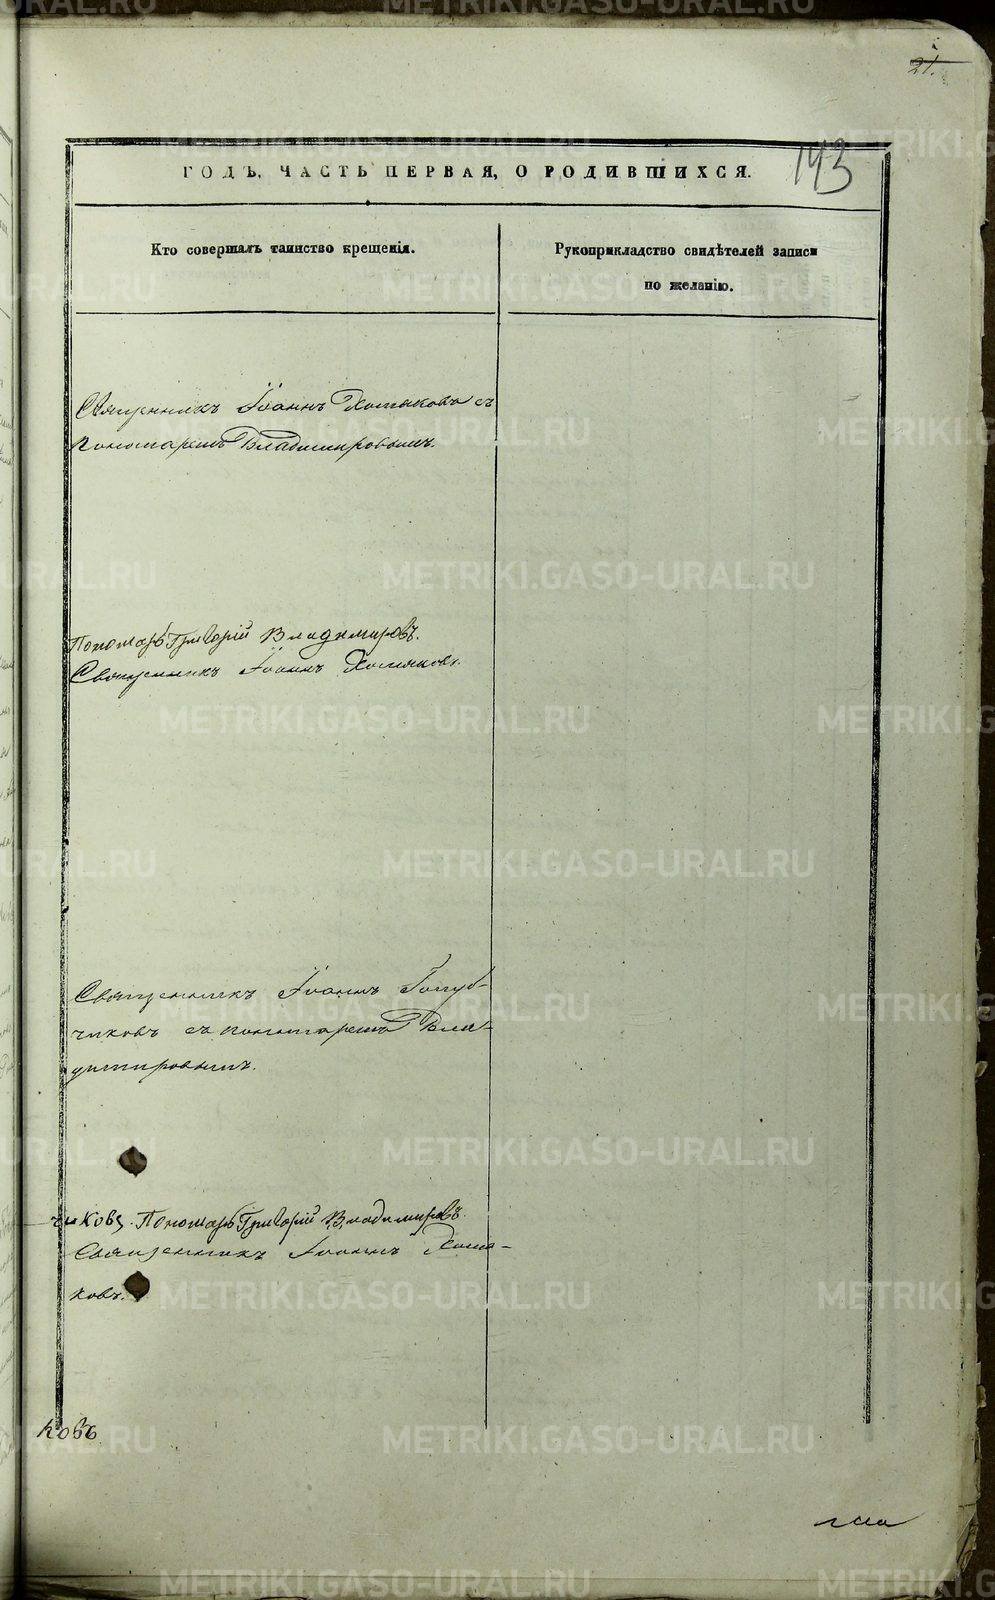 21.
143
ГОДЪ, ЧАСТЬ ПЕРВАЯ, О РОДИВШИХСЯ.
Кто совершалъ таинство крещенія.
Рукоприкладство свидѣтелей записи
по желанію.
Священникъ Іоаннъ Хомяковъ съ
Пономаремъ Владимировымъ.
Пономарь Григорій Владимировъ.
Священникъ Іоаннъ Хомяковъ.
Священникъ Іоаннъ Голуб-
чиковъ съ пономаремъ Вла-
димировымъ.
чиковъ. Пономарь Григорій Владимировъ.
Священникъ Іоаннъ Хомя-
ковъ.
ковъ
METRIKI.GASO-URAL.RU